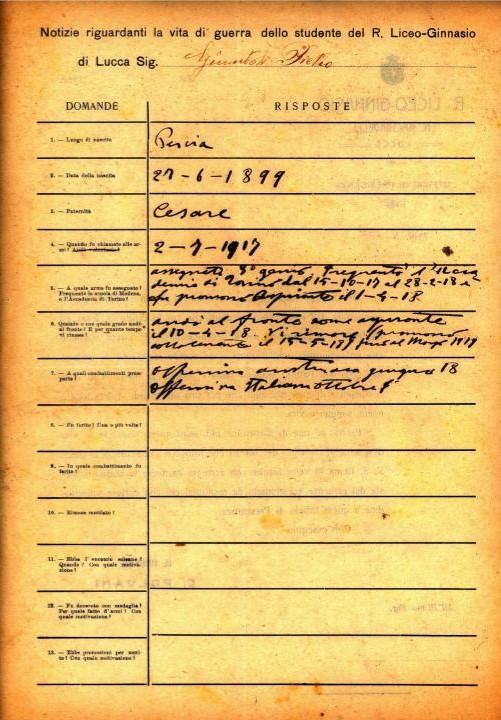 Notizie riguardanti la vita di guerra dello studente del R. Liceo-Ginnasio
di Lucca Sig. Pietro
DOMANDE
RISPOSTE
1. — Luogo di nascita
Pescia
2. — Data della nascita
27-6-1899
3. — Paternità
Cesare
4. — Quando fu chiamato alle armi? Andò volontario?
2-7-1917
5. — A quale arma fu assegnato?
Frequentò la scuola di Modena,
o l'Accademia di Torino?
assegnato 5º genio. Frequentò l'Acca
demia di Torino dal 15-10-17 al 28-2-18 e
fu promosso Aspirante il 1-4-18
6. Quando e con quale grado andò
al fronte? E per quanto tempo
vi rimase?
andò al fronte come aspirante
il 10-4-18. Vi rimase
sottotenente il 15-5-18) fino al 1919
7. — A quali combattimenti prese
parte?
offensiva austriaca giugno 18
offensiva Italiana ottobre
8. — Fu ferito? Una o più volte?
9. — In quale combattimento fu
ferito?
10. — Rimase mutilato?
11. — Ebbe l'encomio solenne?
Quando? Con quale motiva-
zione?
12. — Fu decorato con medaglia?
Per quale fatto d'armi? Con
quale motivazione?
13. — Ebbe promozioni per meri-
to? Con quale motivazione?